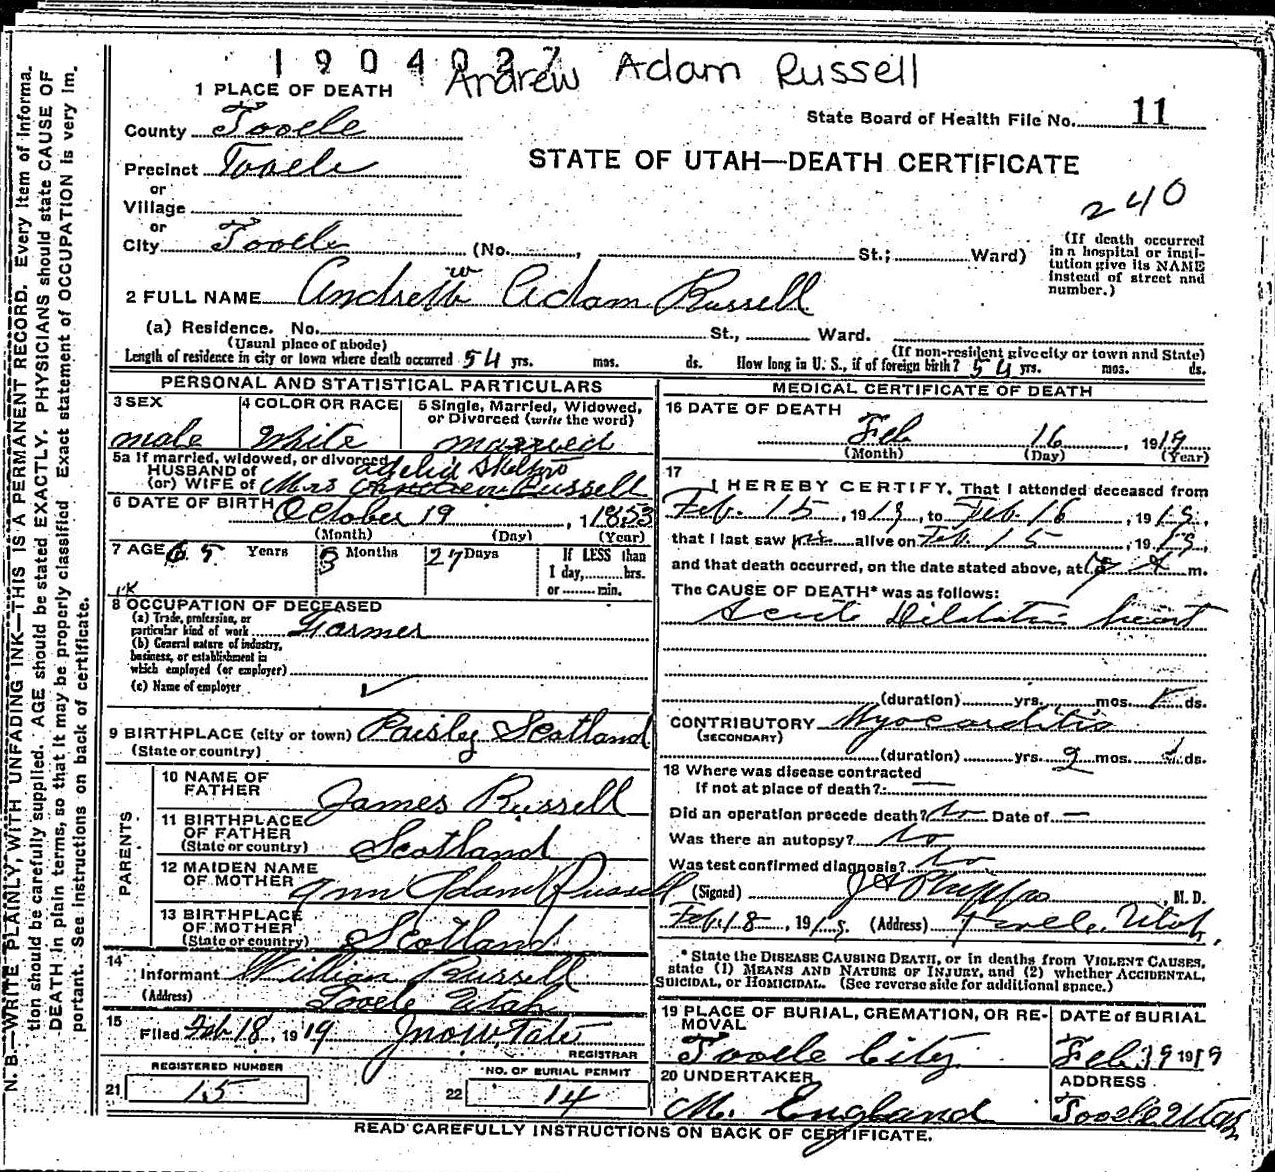 1904027 Andrew Adam Russell
1 PLACE OF DEATH
State Board of Health File No. 11
County Tooele
STATE OF UTAH—DEATH CERTIFICATE
Precinct Tooele
240
or
Village
or
City Tooele (No. , St.; Ward)
(If death occurred in a hospital or insti-
tution give its NAME
instead of street and
number.)
2 FULL NAME Andrew Adam Russell
(a) Residence. No. St., Ward.
(Usual place of abode) (If non-resident give city or town and State)
Length of residence in city or town where death occurred 54 yrs. mos. ds. How long in U. S., if of foreign birth? 54 yrs. mos. ds.
PERSONAL AND STATISTICAL PARTICULARS
3 SEX
male
4 COLOR OR RACE
White
5 Single, Married, Widowed,
or Divorced (write the word)
married
5a If married, widowed, or divorced
HUSBAND of
(or) WIFE of Mrs Andrew Russell
6 DATE OF BIRTH October 19, 1853
(Month) (Day) (Year)
7 AGE 65 Years 3 Months 27 Days
If LESS than
1 day, hrs.
or min.
8 OCCUPATION OF DECEASED
(a) Trade, profession, or
particular kind of work Farmer
(b) General nature of industry,
business, or establishment in
which employed (or employer)
(c) Name of employer
9 BIRTHPLACE (city or town) Paisly Scotland
(State or country)
PARENTS
10 NAME OF
FATHER James Russell
11 BIRTHPLACE
OF FATHER
(State or country) Scotland
12 MAIDEN NAME
OF MOTHER Ann Adam Russell
13 BIRTHPLACE
OF MOTHER
(State or country) Scotland
14
Informant William Russell
(Address) Tooele Utah
15
Filed Feb 18, 1919 Jno W. Tate
REGISTRAR
REGISTERED NUMBER
21 15
NO. OF BURIAL PERMIT
22 14
MEDICAL CERTIFICATE OF DEATH
16 DATE OF DEATH
Feb 16, 1919
(Month) (Day) (Year)
17
I HEREBY CERTIFY, That I attended deceased from
Feb. 15, 1919, to Feb 16, 1919,
that I last saw him alive on Feb. 15, 1919,
and that death occurred, on the date stated above, at m.
The CAUSE OF DEATH* was as follows:
Acute Dilatation heart
(duration) yrs. mos. ds.
CONTRIBUTORY Myocarditis
(SECONDARY)
(duration) yrs. 2 mos. ds.
18 Where was disease contracted
If not at place of death?
Did an operation precede death? No Date of —
Was there an autopsy? No
Was test confirmed diagnosis? No
(Signed) , M. D.
Feb. 18, 1919. (Address) Tooele, Utah,
* State the DISEASE CAUSING DEATH, or in deaths from VIOLENT CAUSES,
state (1) MEANS AND NATURE OF INJURY, and (2) whether ACCIDENTAL,
SUICIDAL, or HOMICIDAL. (See reverse side for additional space.)
19 PLACE OF BURIAL, CREMATION, OR RE-
MOVAL
Tooele City
DATE of BURIAL
Feb. 19 1919
20 UNDERTAKER
M. England
ADDRESS
Tooele Utah
READ CAREFULLY INSTRUCTIONS ON BACK OF CERTIFICATE.
N. B.—WRITE PLAINLY, WITH UNFADING INK—THIS IS A PERMANENT RECORD. Every item of informa-
tion should be carefully supplied. AGE should be stated EXACTLY. PHYSICIANS should state CAUSE OF
DEATH in plain terms, so that it may be properly classified. Exact statement of OCCUPATION is very im-
portant. See instructions on back of certificate.